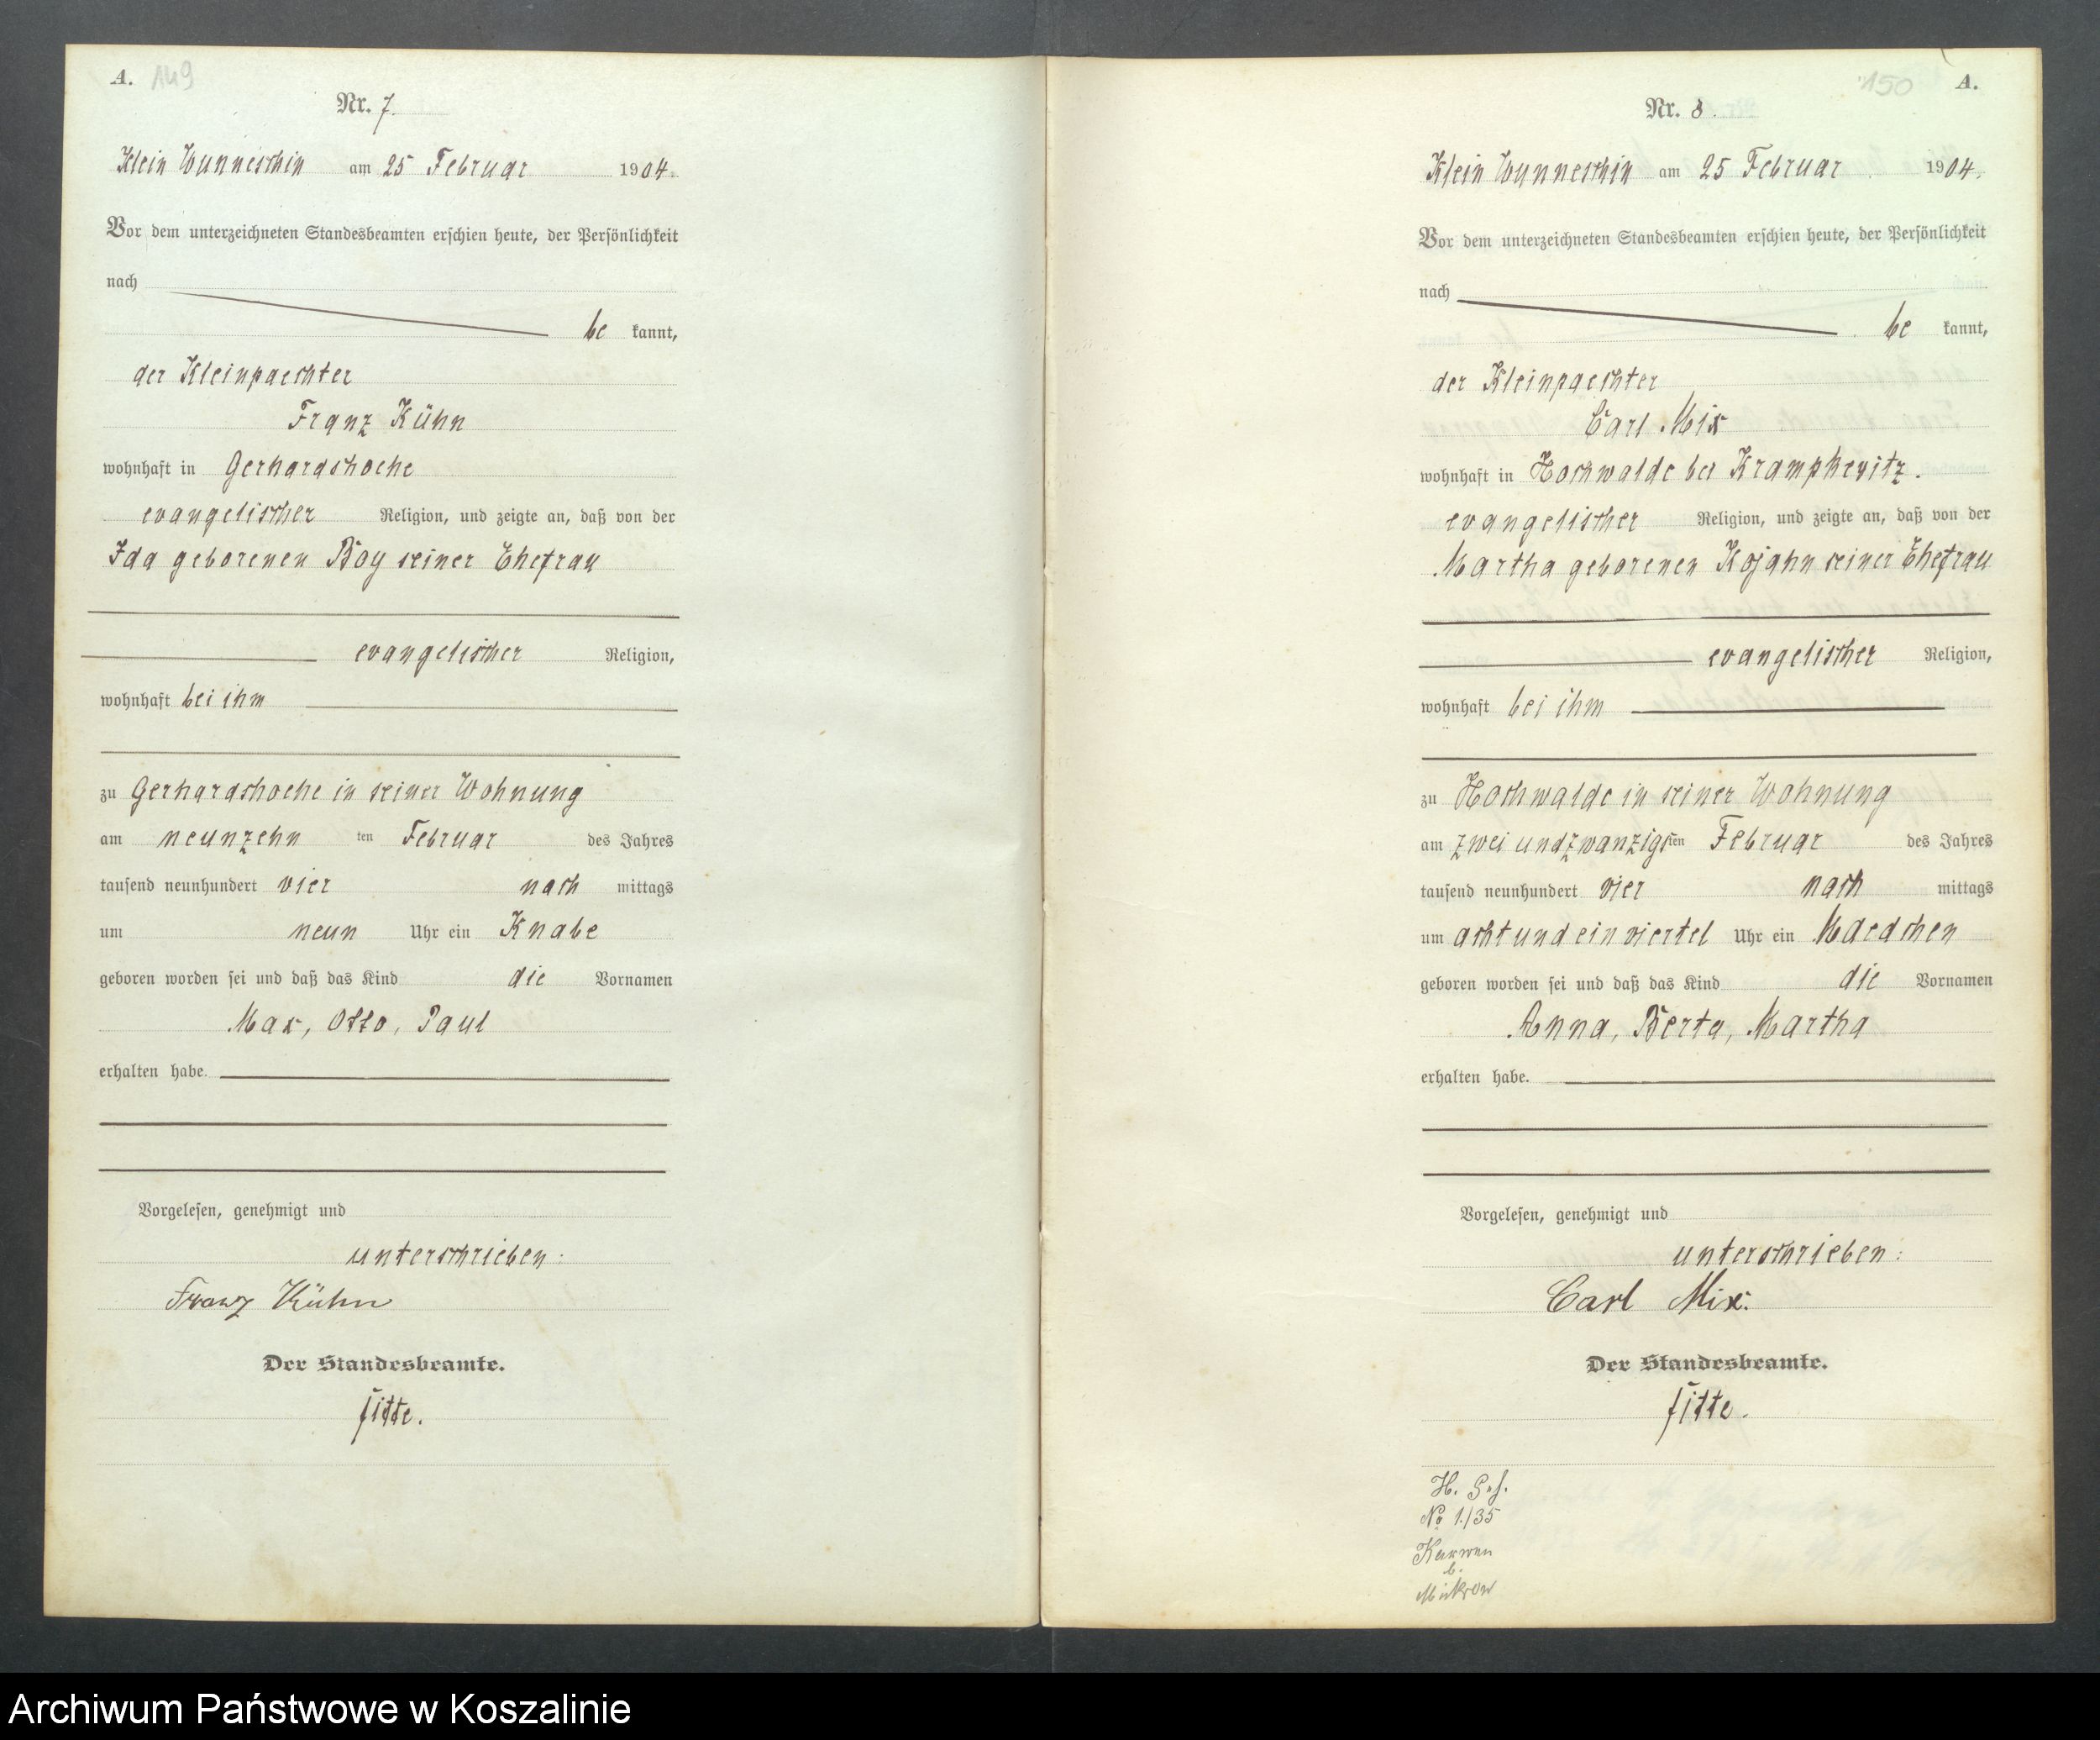 A. 149
Nr. 7.
Klein Wunneschin am 25 Februar 1904.
Vor dem unterzeichneten Standesbeamten erschien heute, der Persönlichkeit
nach
be kannt,
der Kleinpaechter
Franz Kühn
wohnhaft in Gerhardshoehe
evangelischer Religion, und zeigte an, daß von der
Ida geborenen Boy seiner Ehefrau
evangelischer Religion,
wohnhaft bei ihm
zu Gerhardshoehe in seiner Wohnung
am neunzehn ten Februar des Jahres
tausend neunhundert vier nach mittags
um neun Uhr ein Knabe
geboren worden sei und daß das Kind die Vornamen
Max, Otto, Paul
erhalten habe.
Vorgelesen, genehmigt und
unterschrieben:
Franz Kühn
Der Standesbeamte.
Fitte.
150 A.
Nr. 8.
Klein Wunneschin am 25 Februar 1904.
Vor dem unterzeichneten Standesbeamten erschien heute, der Persönlichkeit
nach
be kannt,
der Kleinpaechter
Carl Mix
wohnhaft in Hochwalde bei Krampkewitz.
evangelischer Religion, und zeigte an, daß von der
Martha geborenen Kojahn seiner Ehefrau
evangelischer Religion,
wohnhaft bei ihm
zu Hochwalde in seiner Wohnung
am zwei und zwanzigsten Februar des Jahres
tausend neunhundert vier nach mittags
um acht und ein viertel Uhr ein Maedchen
geboren worden sei und daß das Kind die Vornamen
Anna, Berta, Martha
erhalten habe.
Vorgelesen, genehmigt und
unterschrieben:
Carl Mix.
Der Standesbeamte.
Fitte.
H.
No 1./35
b.
Mickrow
Archiwum Państwowe w Koszalinie